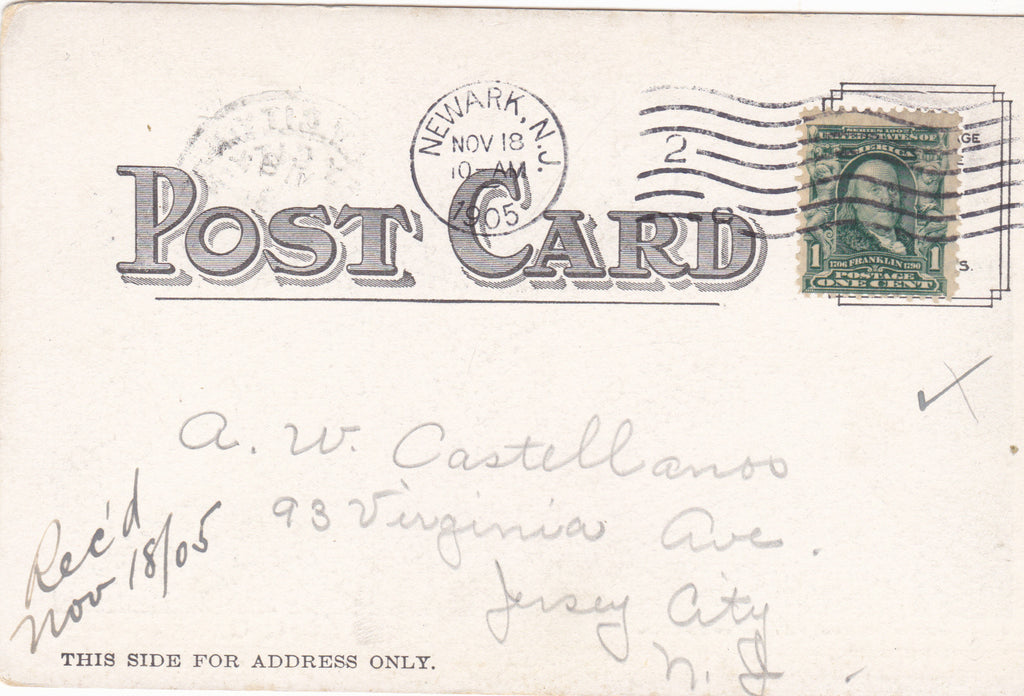 NEWARK, N.J.
NOV 18
10-AM
1905
2
SERIES 1902
UNITED STATES OF
AMERICA
1 1706 FRANKLIN 1790 1
POSTAGE
ONE CENT
GE
E
S.
POST CARD
A. W. Castellanos
93 Virginia Ave.
Jersey City
N. J.
Rec'd
Nov 18/05
THIS SIDE FOR ADDRESS ONLY.